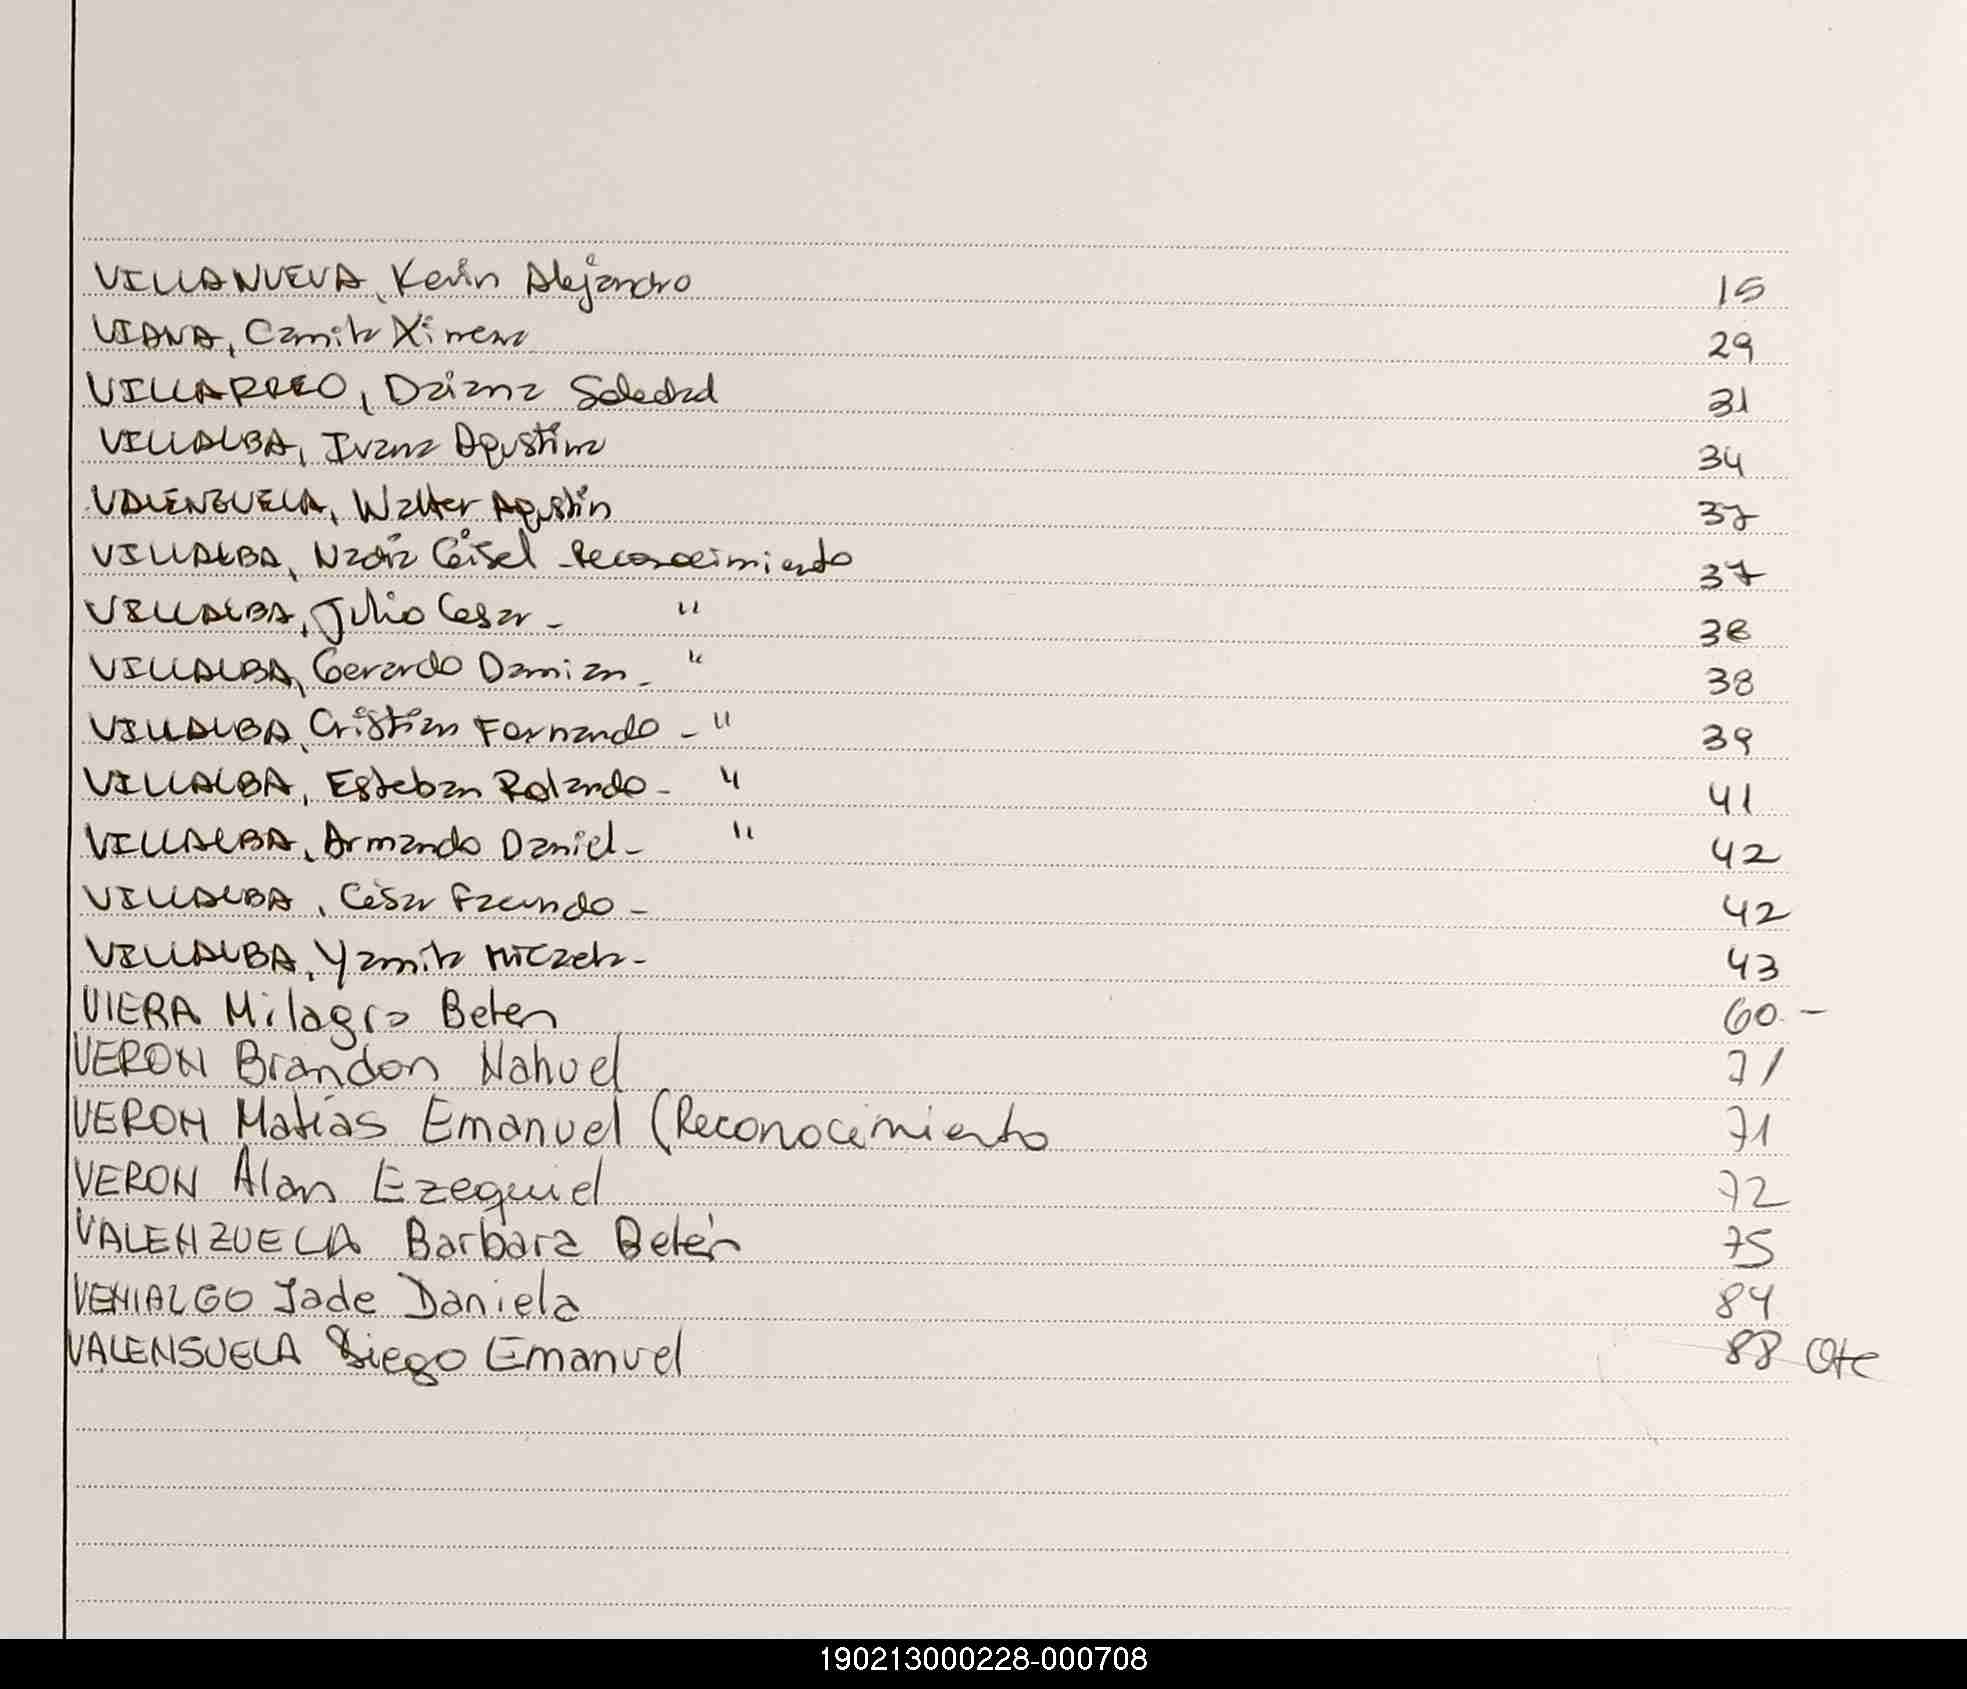 VILLANUEVA, Kevin Alejandro 15
VIANA, Camila Ximena 29
VILLARREO, Daiana Soledad 31
VILLALBA, Ivana Agustina 34
VALENZUELA, Walter Agustín 37
VILLALBA, Nadia Geisel - Reconocimiento 37
VILLALBA, Julio Cesar - " 38
VILLALBA, Gerardo Damian - " 38
VILLALBA, Cristian Fernando - " 39
VILLALBA, Esteban Rolando - " 41
VILLALBA, Armando Daniel - " 42
VILLALBA, César Facundo - 42
VILLALBA, Yamila Micaela - 43
VIERA Milagro Belen 60.-
VERON Brandon Nahuel 71
VERON Matías Emanuel (Reconocimiento 71
VERON Alan Ezequiel 72
VALENZUELA Barbara Belén 75
VENIALGO Jade Daniela 84
VALENSUELA Diego Emanuel 88
190213000228-000708